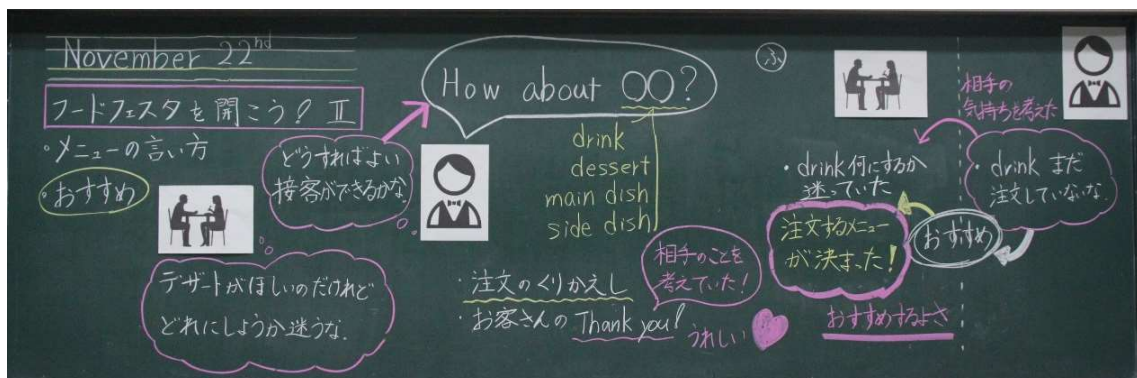 November 22nd
フードフェスタを開こう! Ⅱ
・メニューの言い方
・おすすめ
どうすればよい
接客ができるかな
デザートがほしいのだけれど
どれにしようか迷うな.
How about ○○?
drink
dessert
main dish
side dish
・注文のくりかえし
・お客さんの Thank you!
相手のことを
考えていた!
うれしい
ふ
・drink 何にするか
迷っていた
注文するメニュー
が決まった!
おすすめ
おすすめするよさ
相手の
気持ちを考えた
・drink まだ
注文していないな.